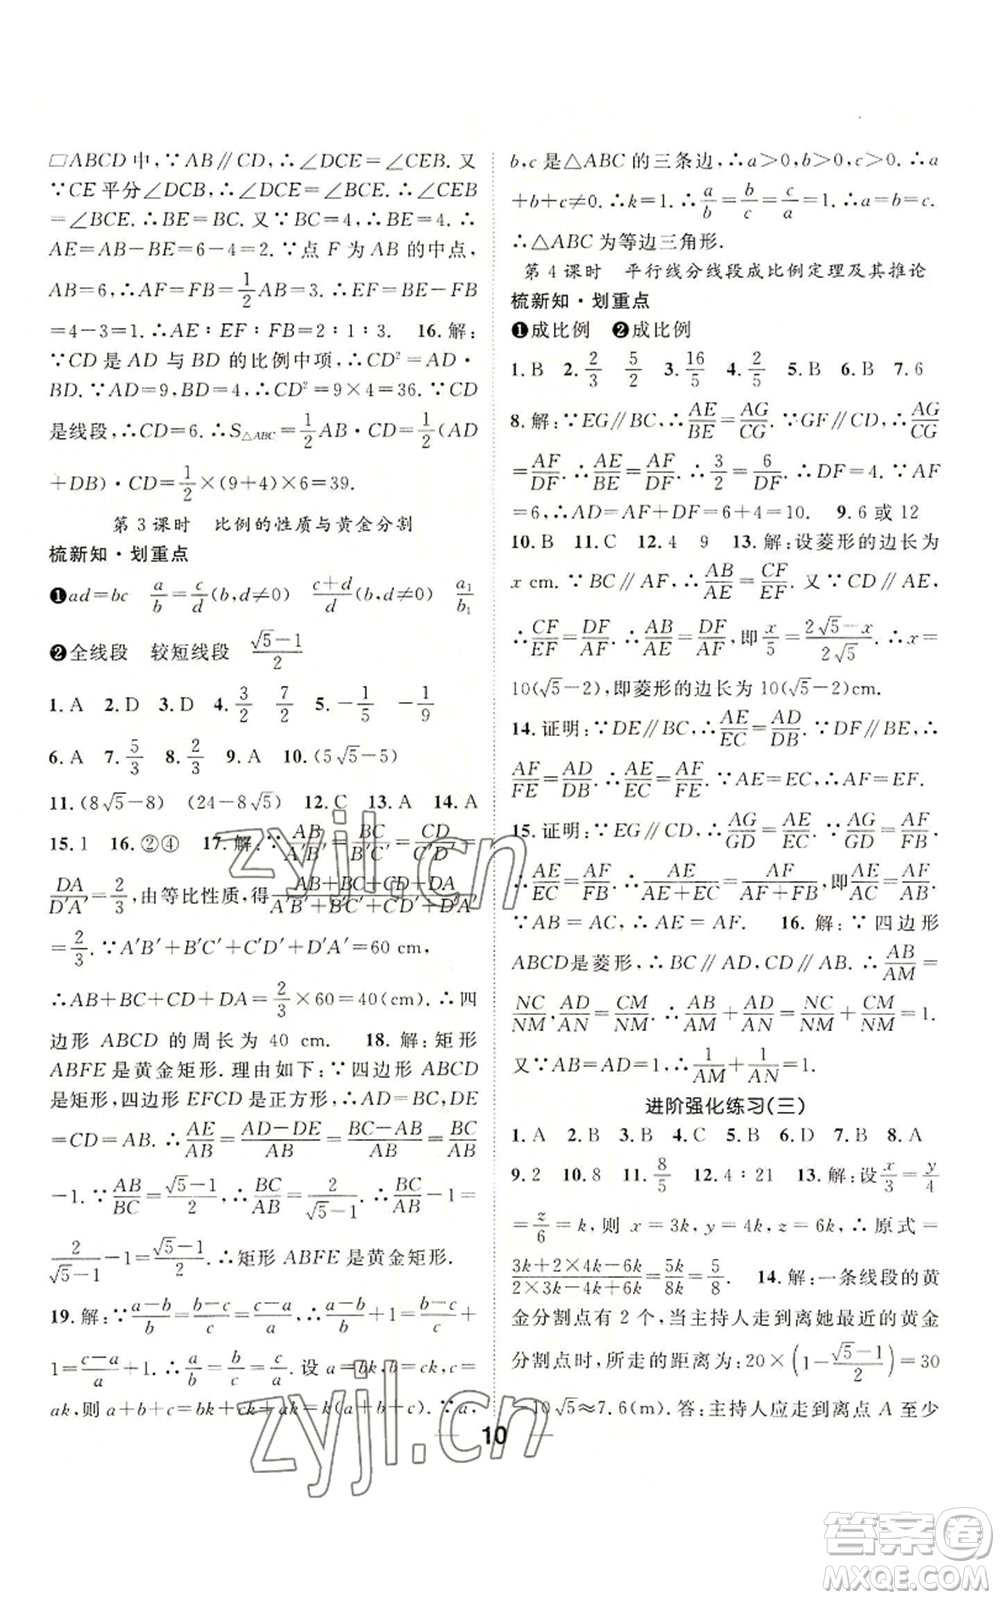 □ABCD中,∵AB∥CD,∴∠DCE=∠CEB. 又
∵CE平分∠DCB,∴∠DCE=∠BCE.∴∠CEB
=∠BCE.∴BE=BC. 又∵BC=4,∴BE=4,∴
AE=AB-BE=6-4=2.∵点 F 为 AB 的中点,
AB=6,∴AF=1/2 AB=3.∴EF=AF-AE
=4-3=1.∴AE∶EF∶FB=2∶1∶3. 16.解:
∵CD 是 AD 与 BD 的比例中项,∴CD²=AD·
BD.∵AD=9,BD=4,∴CD²=9×4=36.∵CD
是线段,∴CD=6.∴S△ABC=1/2 AB·CD=1/2(AD
+DB)·CD=1/2×(9+4)×6=39.
第 3 课时 比例的性质与黄金分割
梳新知·划重点
❶ad=bc a/b=c/d(b,d≠0) (c+d)/d(b,d≠0) a₁/b₁
❷全线段 较短线段 (√5-1)/2
1.A 2.D 3.D 4.3/2 7/2 5.-1/5 -1/9
6.A 7.5/3 8.2/3 9.A 10.(5√5-5)
11.(8√5-8) (24-8√5) 12.C 13.A 14.A
15.1 16.②④ 17.解:∵AB/A′B′=BC/B′C′=CD/C′D′=
DA/D′A′=2/3,由等比性质,得(AB+BC+CD+DA)/(A′B′+B′C′+C′D′+D′A′)
=2/3.∵A′B′+B′C′+C′D′+D′A′=60 cm,
∴AB+BC+CD+DA=2/3×60=40(cm).∴四
边形 ABCD 的周长为 40 cm. 18.解:矩形
ABFE 是黄金矩形. 理由如下:∵四边形 ABCD
是矩形,四边形 EFCD 是正方形,∴AD=BC,DE
=CD=AB.∴AE/AB=(AD-DE)/AB=(BC-AB)/AB=BC/AB
-1.∵AB/BC=(√5-1)/2,∴BC/AB=2/(√5-1).∴BC/AB-1=
2/(√5-1)-1=(√5-1)/2.∴矩形 ABFE 是黄金矩形.
19.解:∵(a-b)/b=(b-c)/c=(c-a)/a,∴(a-b)/b+1=(b-c)/c+
1=(c-a)/a+1.∴a/b=b/c=c/a. 设 a=bk,b=ck,c=
ak,则 a+b+c=bk+ck+ak=k(a+b+c).∵a,
b,c 是△ABC 的三条边,∴a>0,b>0,c>0.∴a
+b+c≠0.∴k=1.∴a/b=b/c=c/a=1.∴a=b=c.
∴△ABC 为等边三角形.
第 4 课时 平行线分线段成比例定理及其推论
梳新知·划重点
❶成比例 ❷成比例
1.B 2.2/3 5/2 3.16/5 4.2/5 5.B 6.B 7.6
8.解:∵EG∥BC,∴AE/BE=AG/CG.∵GF∥CD,∴AG/CG
=AF/DF.∴AE/BE=AF/DF.∴3/2=6/DF.∴DF=4.∵AF
=6,∴AD=AF+DF=6+4=10. 9.6 或 12
10.B 11.C 12.4 9 13.解:设菱形的边长为
x cm.∵BC∥AF,∴AB/AE=CF/EF. 又∵CD∥AE,
∴CF/EF=DF/AF.∴AB/AE=DF/AF,即x/5=(2√5-x)/(2√5).∴x=
10(√5-2),即菱形的边长为 10(√5-2)cm.
14.证明:∵DE∥BC,∴AE/EC=AD/DB.∵DF∥BE,∴
AF/FE=AD/DB.∴AE/EC=AF/FE.∵AE=EC,∴AF=EF.
15.证明:∵EG∥CD,∴AG/GD=AE/EC.∵AG/GD=AF/FB,
∴AE/EC=AF/FB,∴AE/(AE+EC)=AF/(AF+FB),即AE/AC=AF/AB.
∵AB=AC,∴AE=AF. 16.解:∵四边形
ABCD是菱形,∴BC∥AD,CD∥AB.∴AB/AM=
NC/NM,AD/AN=CM/NM.∴AB/AM+AD/AN=NC/NM+CM/NM=1.
又∵AB=AD=1,∴1/AM+1/AN=1.
进阶强化练习(三)
1.A 2.B 3.B 4.C 5.B 6.D 7.B 8.A
9.2 10.8 11.8/5 12.4∶21 13.解:设x/3=y/4
=z/6=k,则 x=3k,y=4k,z=6k,∴原式=
(3k+2×4k-6k)/(2×3k-4k+6k)=5k/8k=5/8. 14.解:一条线段的黄
金分割点有 2 个,当主持人走到离她最近的黄金
分割点时,所走的距离为:20×(1-(√5-1)/2)=30
-10√5≈7.6(m). 答:主持人应走到离点 A 至少
10
zyjl.cn
zyjl.cn
答案圈
MXQE.COM